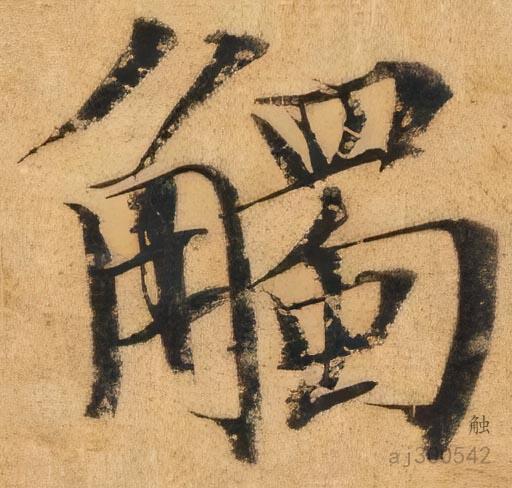 觸
触
aj300542